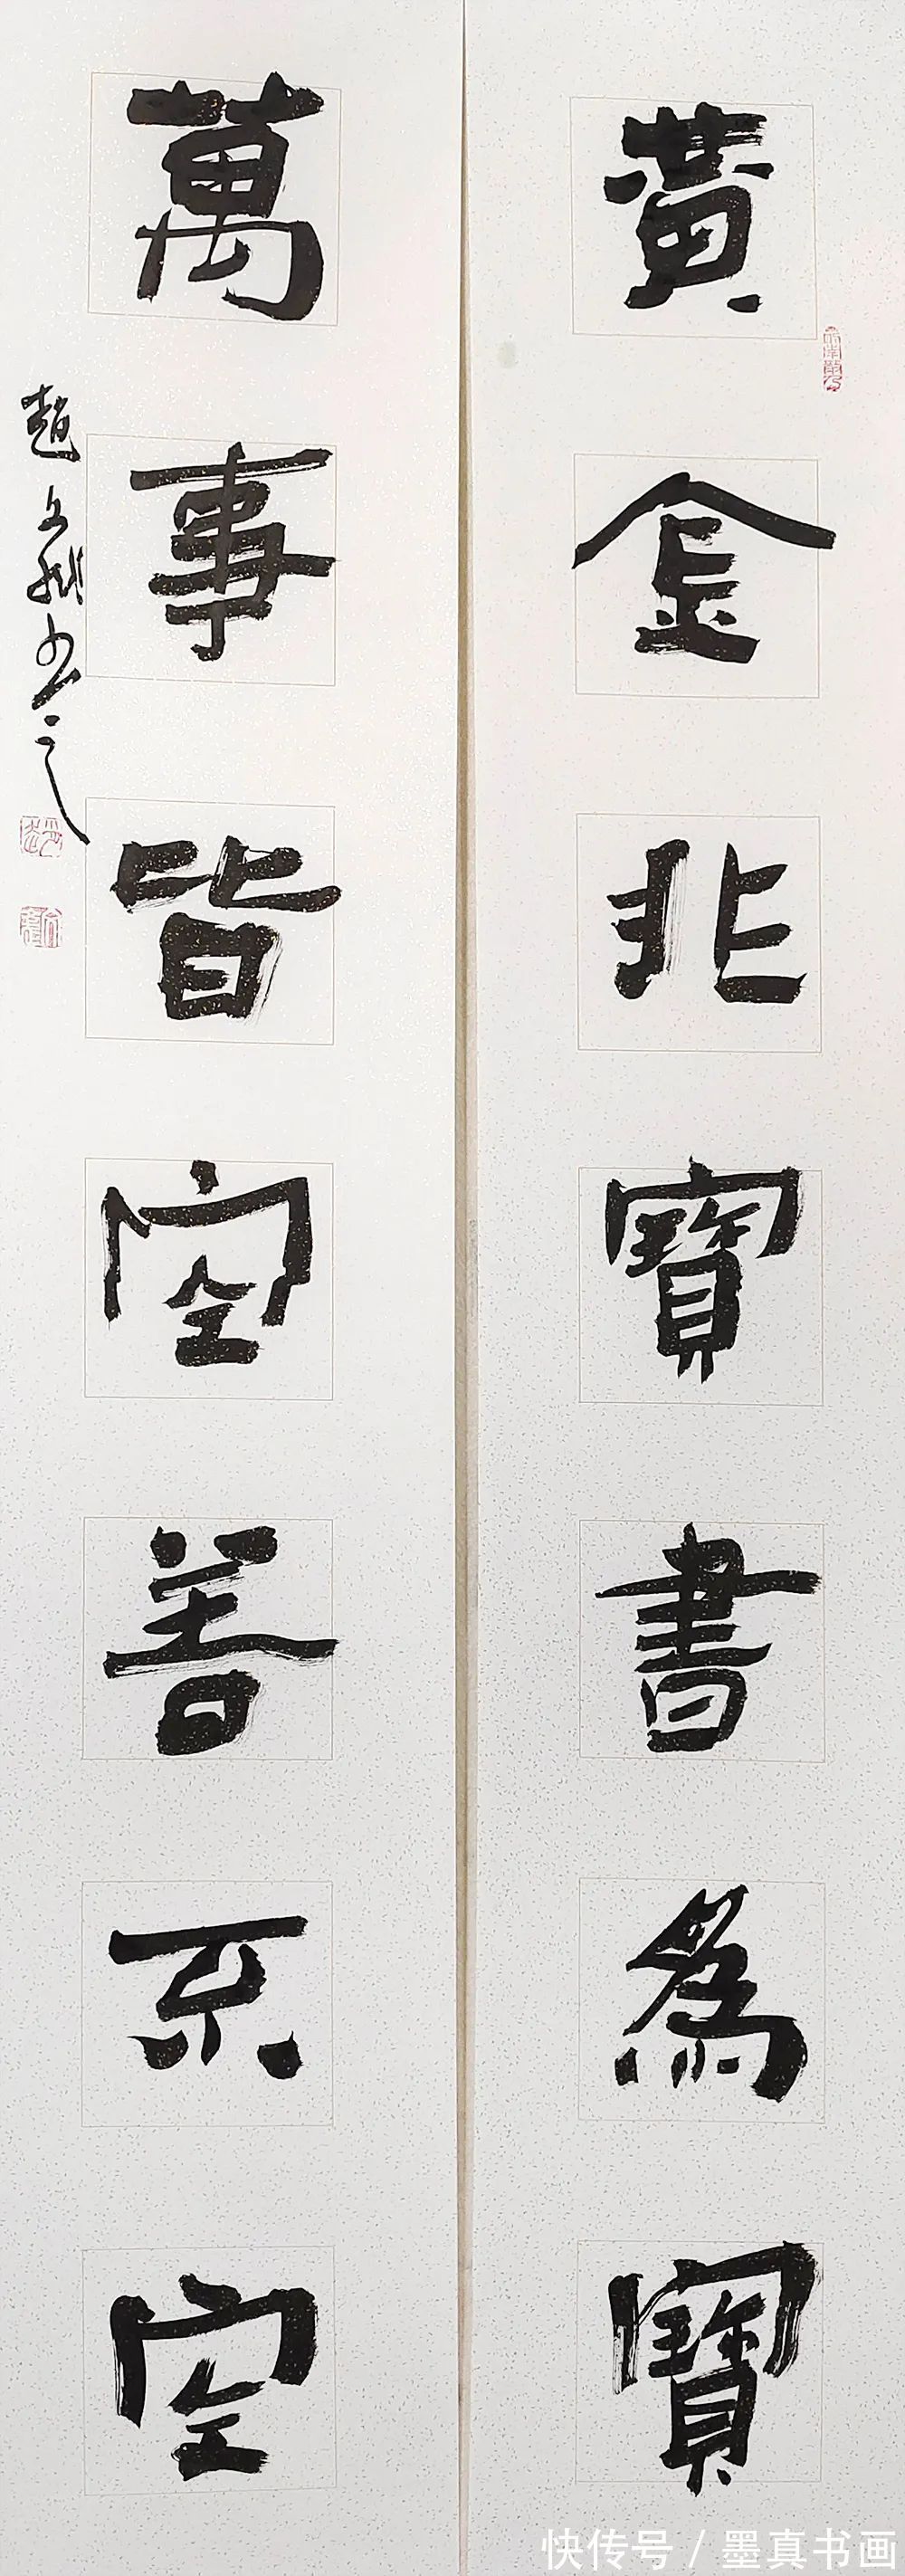 黄金非寶書爲寶
萬事皆空善不空
趙文斌书之
快传号 / 墨真书画